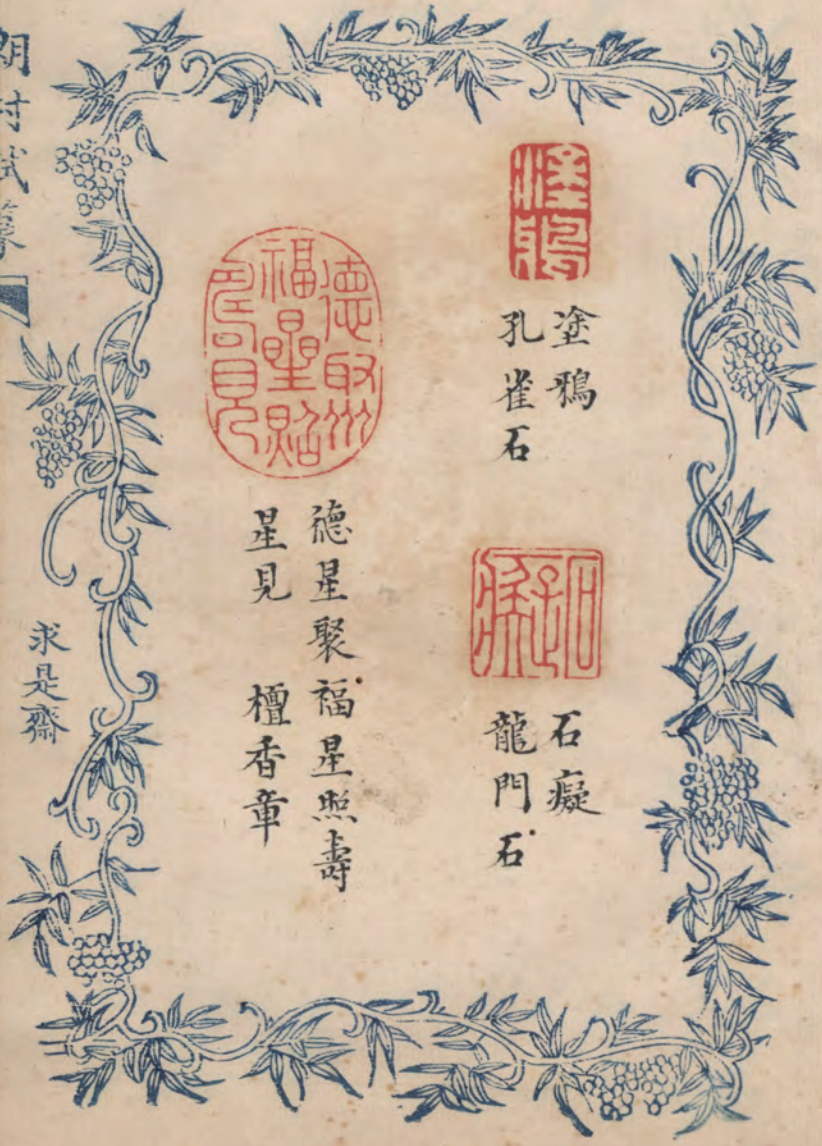 塗鴉
塗鴉
孔雀石
石癡
石癡
龍門石
德星聚福星照壽
德星聚福星照壽
星見 檀香章
求是齋